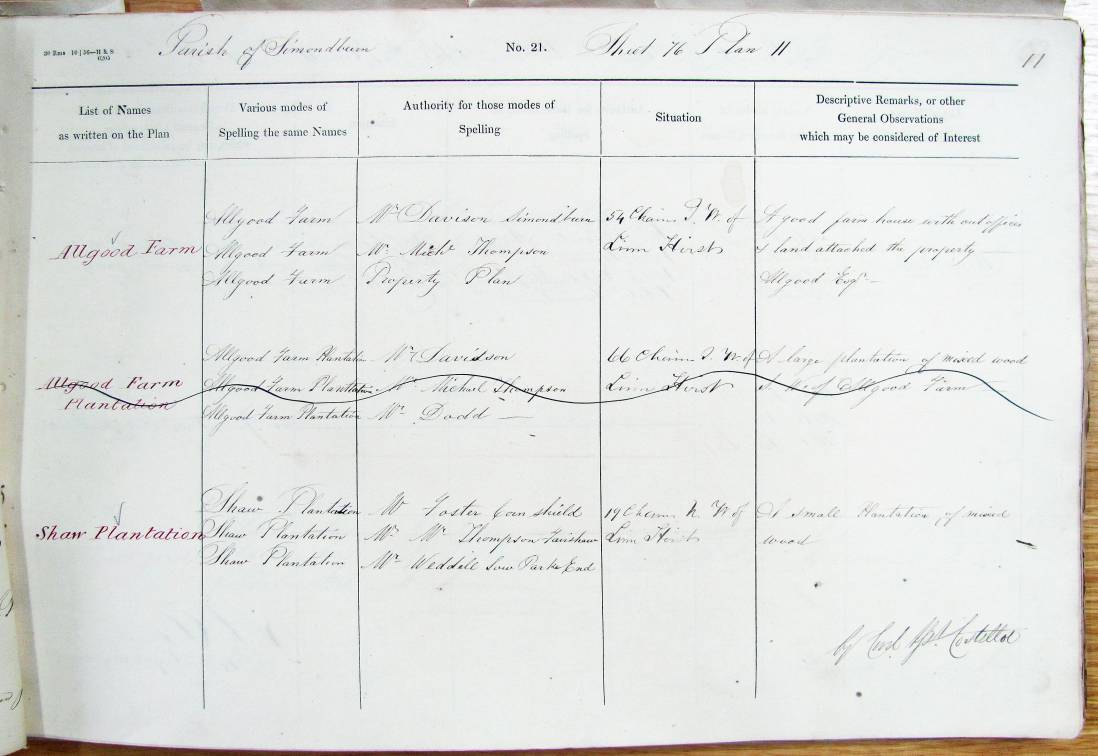 20 Rms 10 | 56—H & S
6205
Parish of Simondburn
No. 21.
Sheet 76 Plan 11
11
List of Names
as written on the Plan
Various modes of
Spelling the same Names
Authority for those modes of
Spelling
Situation
Descriptive Remarks, or other
General Observations
which may be considered of Interest
Allgood Farm
Allgood Farm
Allgood Farm
Allgood Farm
Mr Davison Simondburn
Mr Michl Thompson
Property Plan
54 Chains S. W. of
Linn Hirst
A good farm house with out offices
& land attached the property —
Allgood Esqr —
Allgood Farm
Plantation
Allgood Farm Plantation
Allgood Farm Plantation
Allgood Farm Plantation
Mr Davidson
Mr Michael Thompson
Mr Dodd —
66 Chains S. W. of
Linn Hirst
A large plantation of mixed wood
of Allgood Farm
Shaw Plantation
Shaw Plantation
Shaw Plantation
Shaw Plantation
Mr Foster
Mr Mr Thompson
Mr Weddell Low Park End
19 Chains N. W. of
Linn Hirst
A Small Plantation of mixed
wood
by Costello